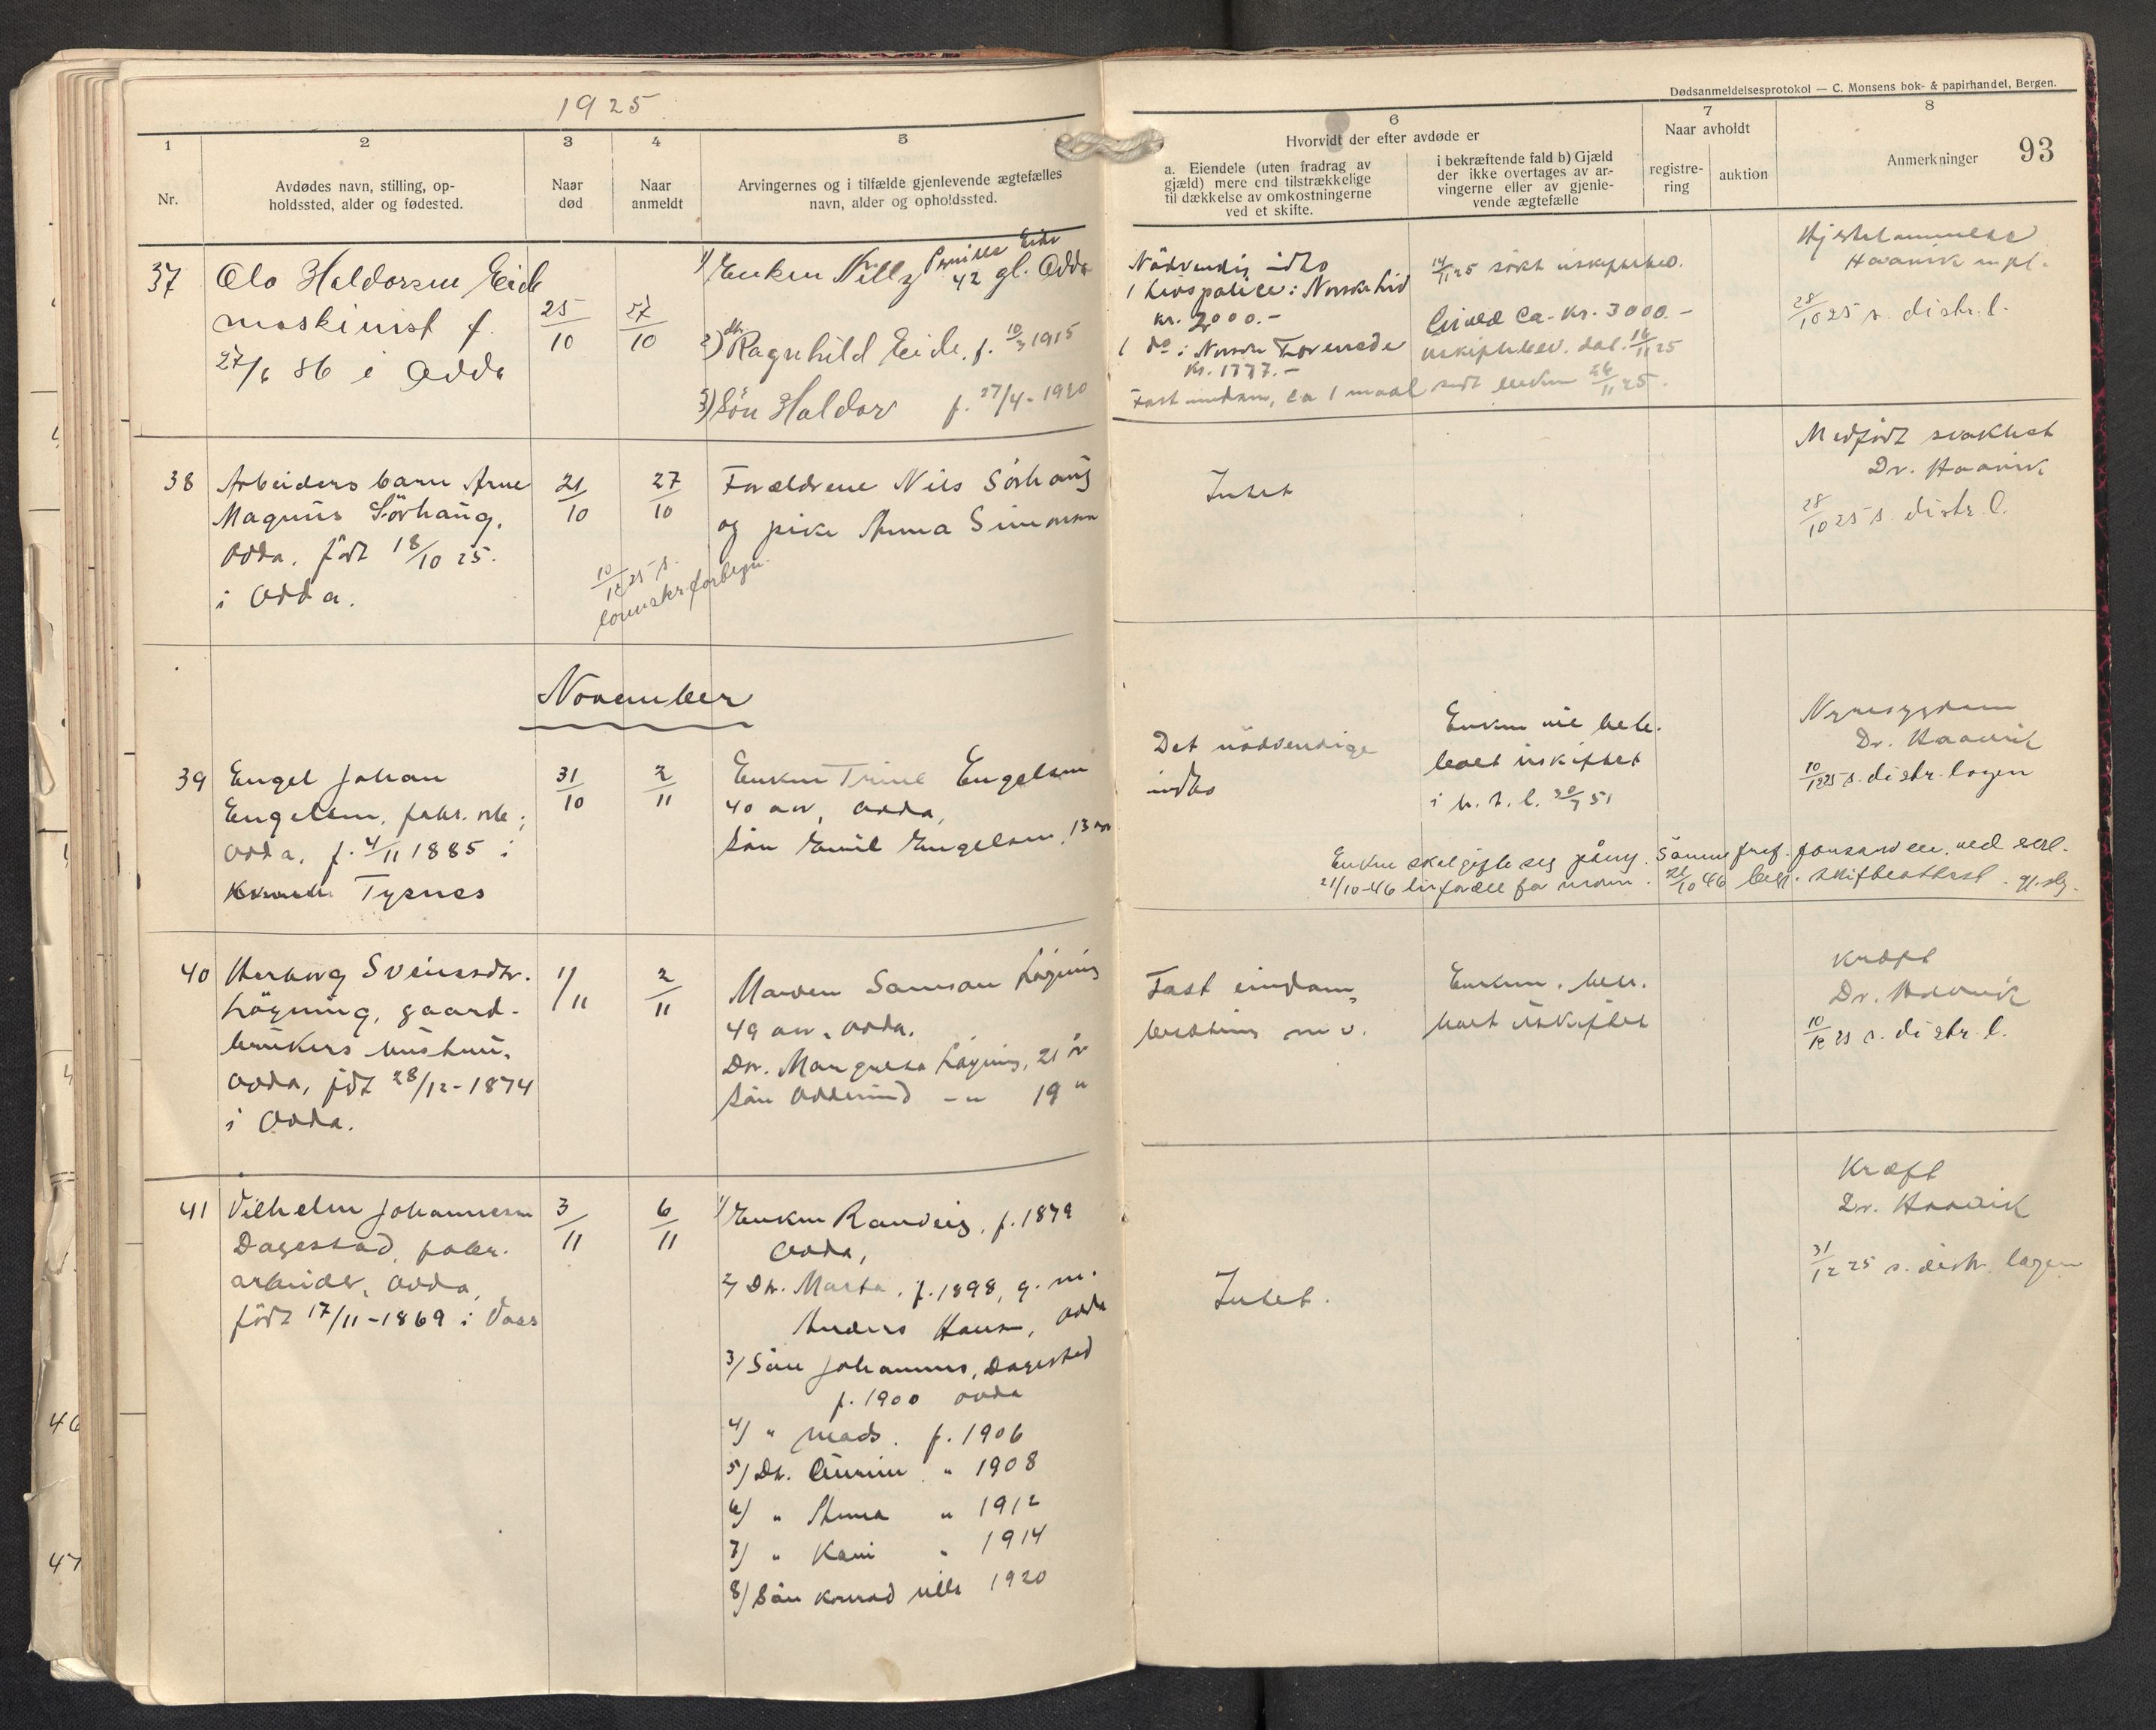 1925
Dødsanmeldelsesprotokol — C. Monsens bok- & papirhandel, Bergen.
93
1
2
3
4
5
6
7
8
Nr.
Avdødes navn, stilling, op-
holdssted, alder og fødested.
Naar
død
Naar
anmeldt
Arvingernes og i tilfælde gjenlevende ægtefælles
navn, alder og opholdssted.
Hvorvidt der efter avdøde er
a. Eiendele (uten fradrag av
gjæld) mere end tilstrækkelige
til dækkelse av omkostningerne
ved et skifte.
i bekræftende fald b) Gjæld
der ikke overtages av ar-
vingerne eller av gjenle-
vende ægtefælle
Naar avholdt
registre-
ring
auktion
Anmerkninger
37
Ola Haldorsen Eide
maskinist f.
27/6 86 i Odda
25/10
27/10
1) Enken Pernille Eide
42 gl. Odda
2) dtr. Ragnhild Eide. f. 10/3 1915
3) Sön Haldor f. 27/4-1920
Nödvendig indbo
1 livspolice: Norske Liv
kr. 2000.-
1 do i Norske Forenede
kr. 1777.-
Fast eiendom, ca 1 maal
14/11 25 sökt uskiftebev.
Gjæld ca. kr. 3000.-
uskiftebev. dat. 16/11 25
sendt enken 26/11 25.
Hjertelammelse
Haavik
28/10 25 s. distr. l.
38
Arbeiders barn Arne
Magnus Sörhaug,
Odda. född 18/10 25.
i Odda.
21/10
27/10
10/12 25 s.
Forældrene Nils Sörhaug
og pike Anna Simonsen
Intet
Medfödt svakhet
Dr. Haavik
28/10 25 s. distr. l.
November
39
Engel Johan
Engelsen, fabr. arb.,
Odda. f. 4/11 1885 i
Tysnes
31/10
2/11
Enken Trine Engelsen
40 aar, Odda,
Sön Emil Engelsen, 13 aar
Det nödvendige
indbo
Enken vil beh.
boet uskiftet
Enken skal gifte seg påny.
21/10-46
21/10 46
skifteattest
Nyresygdom
Dr. Haavik
10/12 25 s. distr. lægen
40
Herborg Sveinsdtr.
Löyning, gaard-
brukers hustru,
Odda, föd 28/12-1874
i Odda.
1/11
2/11
Manden Samson Löyning
49 aar, Odda.
Dtr. Margreta Löyning, 21 år
Sön Oddmund -"- 19 "
Fast eiendom,
besætning m.v.
Enkem. beh.
boet uskiftet
Kræft
Dr. Haavik
10/12 25 s. distr. l.
41
Vilhelm Johannesen
Dagestad, fabr.
arbeider, Odda,
född 17/11-1869 i Voss
3/11
6/11
1) Enken Randveig, f. 1879
Odda,
2) Dtr. Marta, f. 1898, g. m.
Anders Hansen, Odda
3) Sön Johannes, Dagestad
f. 1900 Odda
4) " Mads. f. 1906
5) Dtr. " 1908
6) " Anna " 1912
7) " Kari " 1914
8) Sön Konrad 1920
Intet.
Kræft
Dr. Haavik
31/12 25 s. distr. lægen
46
47